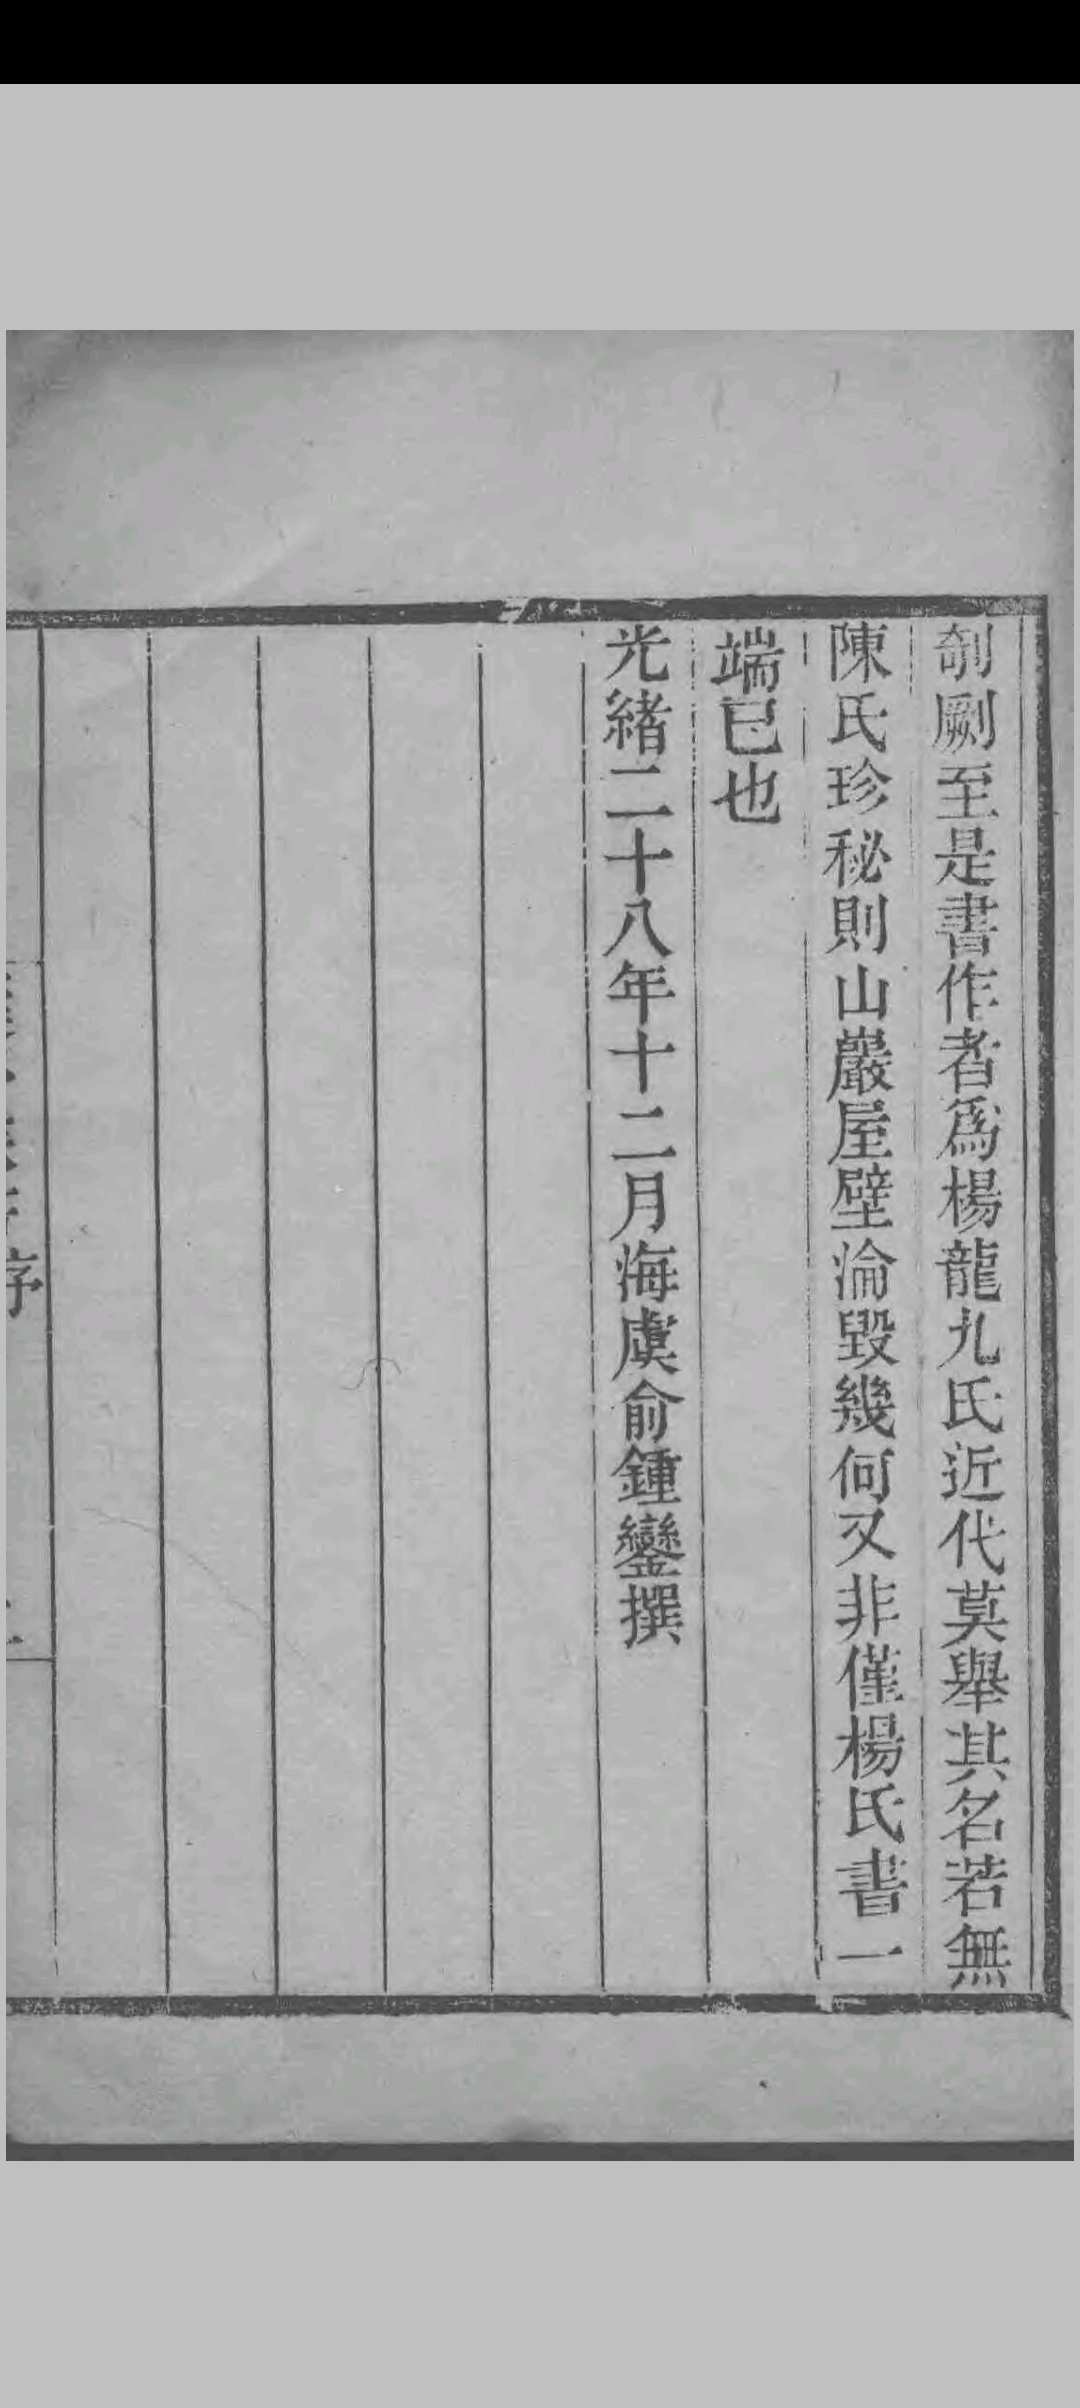 剞劂至是書作者爲楊龍九氏近代莫舉其名若無
陳氏珍秘則山巖屋壁淪毀幾何又非僅楊氏書一
端已也
光緒二十八年十二月海虞俞鍾鑾撰
序